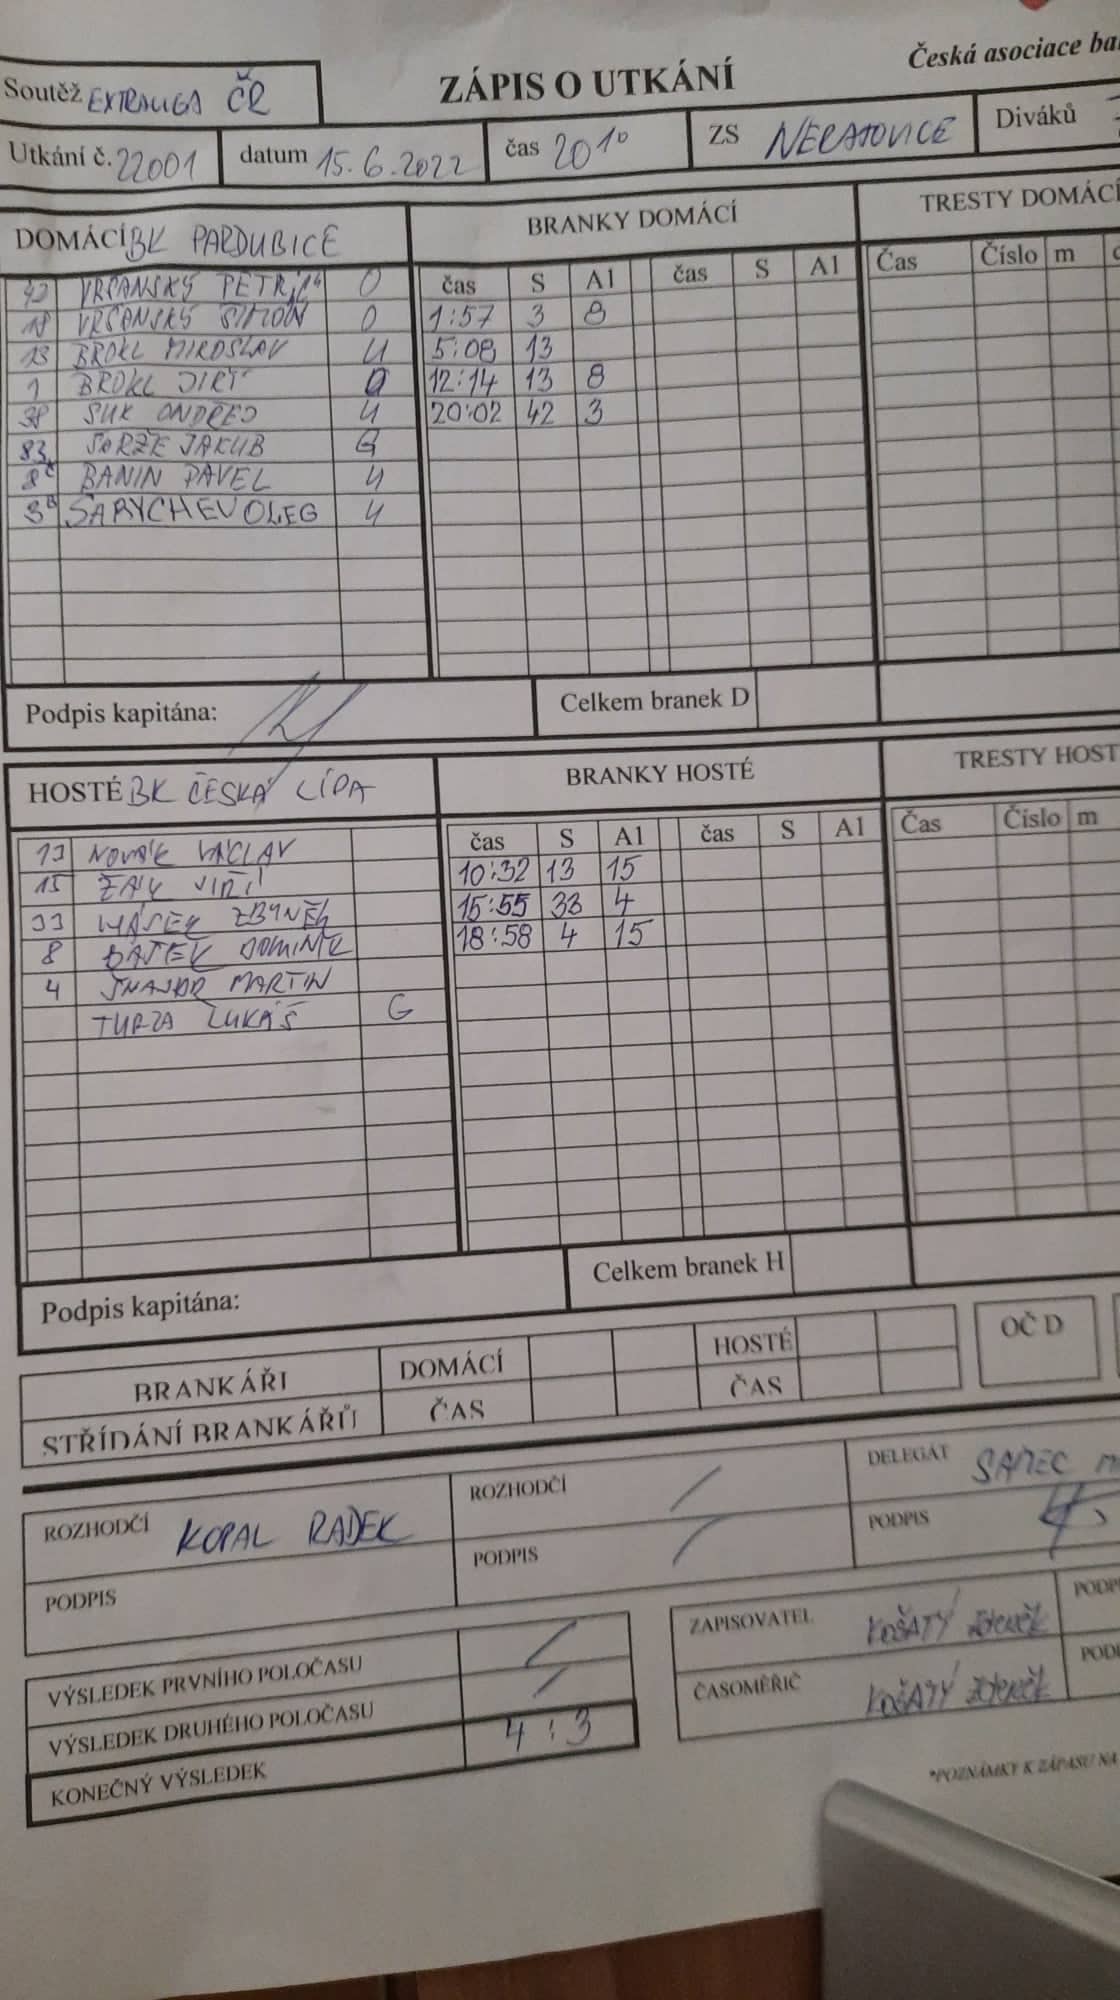 Česká asociace
Soutěž EXTRALIGA ČR
ZÁPIS O UTKÁNÍ
Utkání č. 22001 datum 15.6.2022 čas 20¹⁰ ZS NERATOVICE Diváků
DOMÁCÍ BK PARDUBICE BRANKY DOMÁCÍ TRESTY DOMÁCÍ
čas S A1 čas S A1 Čas Číslo m
42 VRŠANSKÝ PETR O
18 VRŠANSKÝ ŠIMON O 1:57 3 8
13 BROKL MIROSLAV U 5:08 13
1 BROKL JIRÍ O 12:14 13 8
38 SUK ONDŘEJ U 20:02 42 3
83 SARŽE JAKUB G
8 BANIN PAVEL U
3 SARYCHEV OLEG U
Podpis kapitána: Celkem branek D
HOSTÉ BK ČESKÁ LÍPA BRANKY HOSTÉ TRESTY HOST
čas S A1 čas S A1 Čas Číslo m
13 NOVÁK VÁCLAV 10:32 13 15
15 ŽÁK JIŘÍ 15:55 33 4
33 ZBYNĚK 18:58 4 15
8 DOMINIK
4 ŠNAJDR MARTIN
TURZA LUKÁŠ G
Podpis kapitána: Celkem branek H
BRANKÁŘI DOMÁCÍ HOSTÉ OČ D
STŘÍDÁNÍ BRANKÁŘŮ ČAS ČAS
ROZHODČÍ KOPAL RADEK ROZHODČÍ / DELEGÁT SAMEC
PODPIS PODPIS / PODPIS
VÝSLEDEK PRVNÍHO POLOČASU / ZAPISOVATEL KOŠATÝ ZDENĚK
VÝSLEDEK DRUHÉHO POLOČASU / ČASOMĚŘIČ KOŠATÝ ZDENĚK
KONEČNÝ VÝSLEDEK 4:3
*POZNÁMKY K ZÁPASU NA